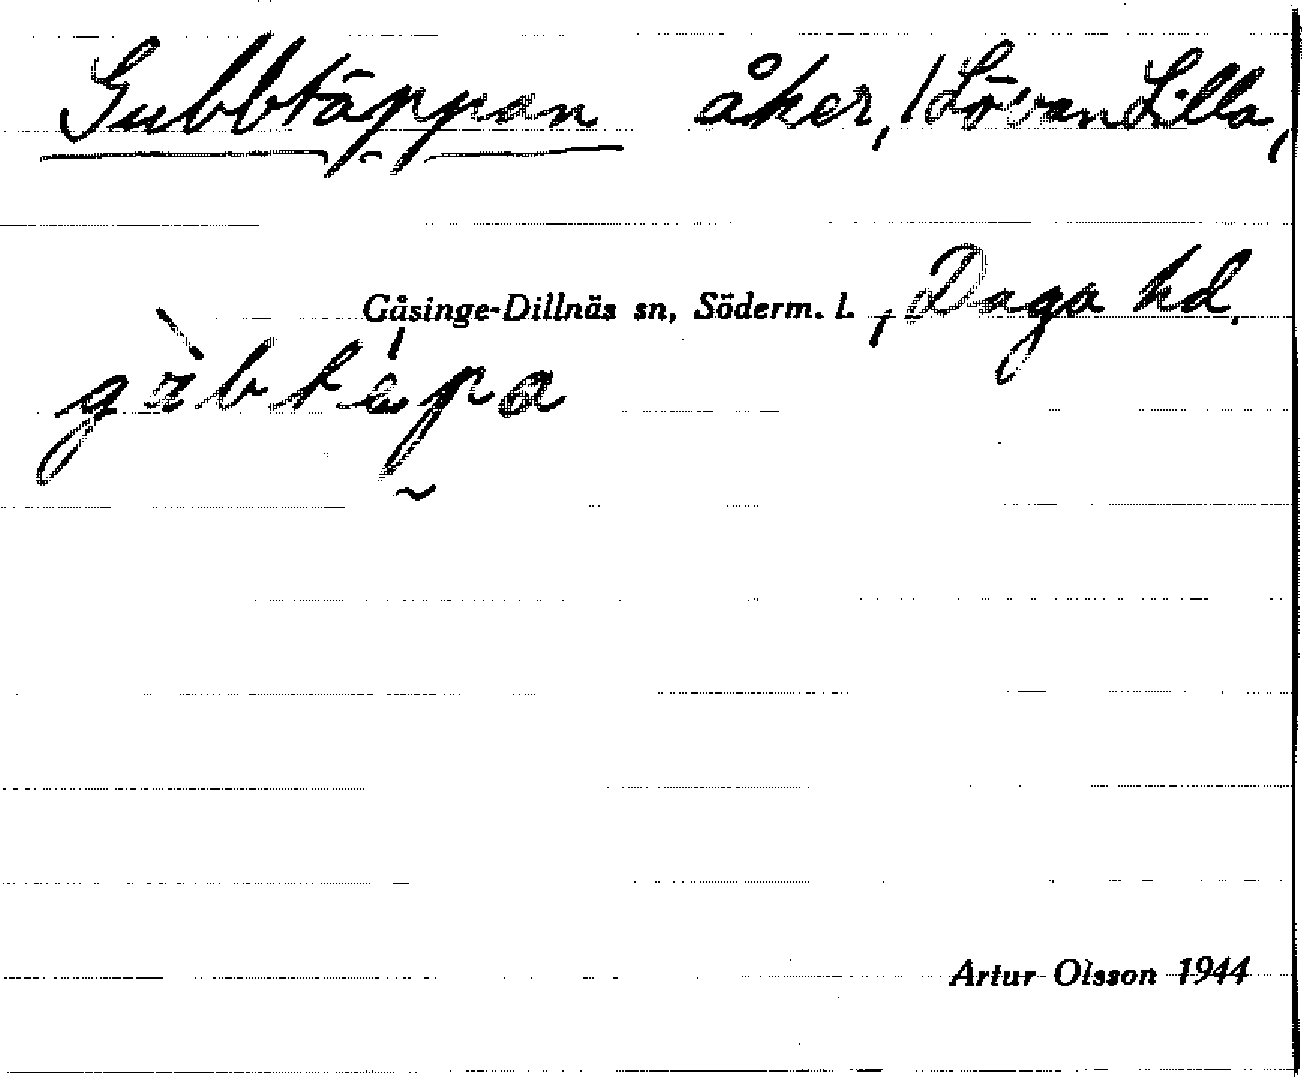 Gubbtäppan åker, Lövan Lilla,
Gåsinge-Dillnäs sn, Söderm. l., Daga hd.
Artur Olsson 1944